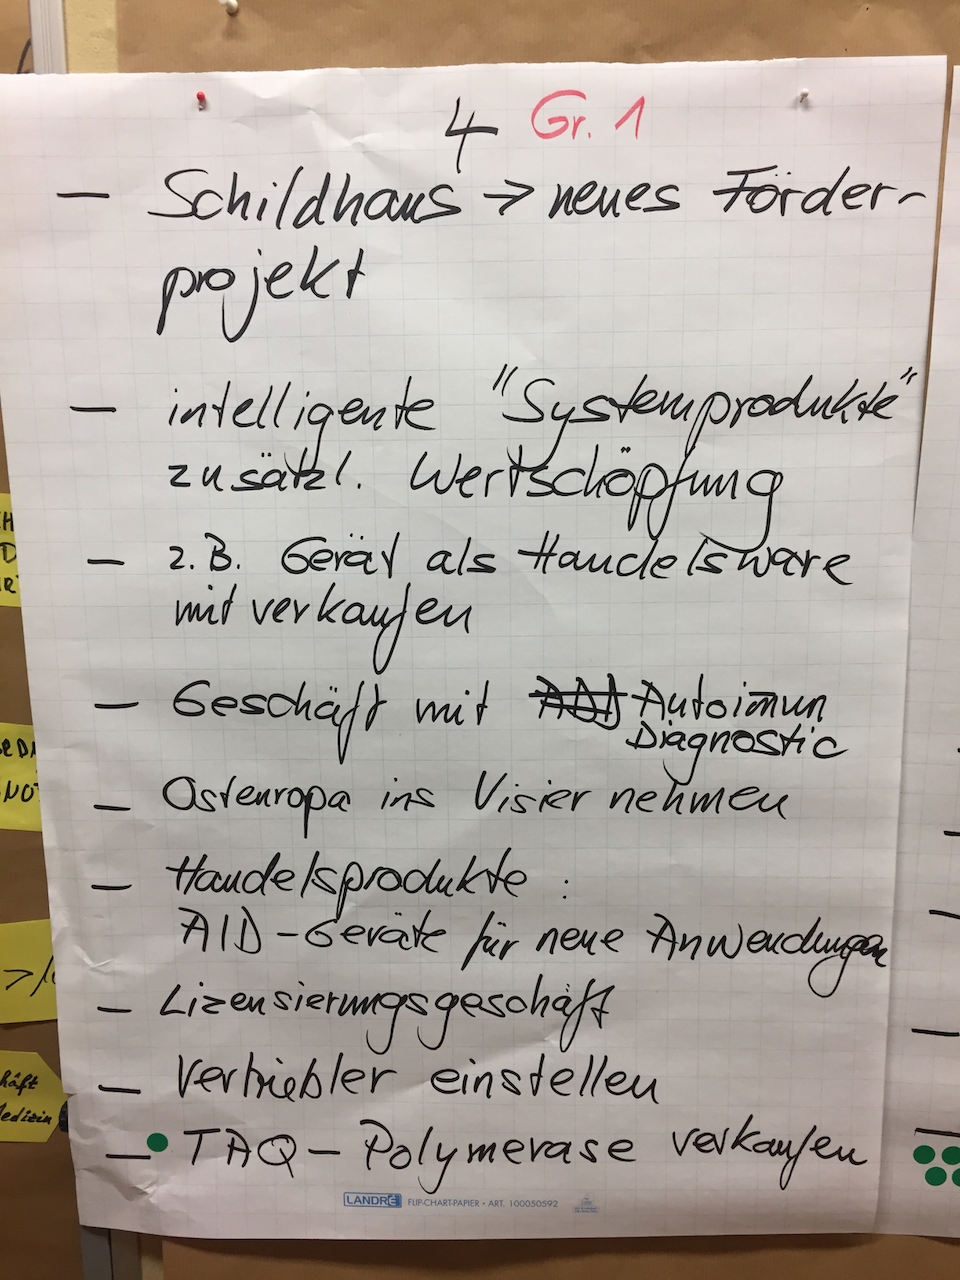 4 Gr. 1
— Schildhaus → neues Förder-
projekt
— intelligente "Systemprodukte"
zusätzl. Wertschöpfung
— z.B. Gerät als Handelsware
mit verkaufen
— Geschäft mit Autoimun
Diagnostic
— Osteuropa ins Visier nehmen
— Handelsprodukte :
AID-Geräte für neue Anwendungen
— Lizensierungsgeschäft
— Vertriebler einstellen
— TAQ-Polymerase verkaufen
LANDRÉ FLIP-CHART-PAPIER • ART. 100050592
häft
Medizin